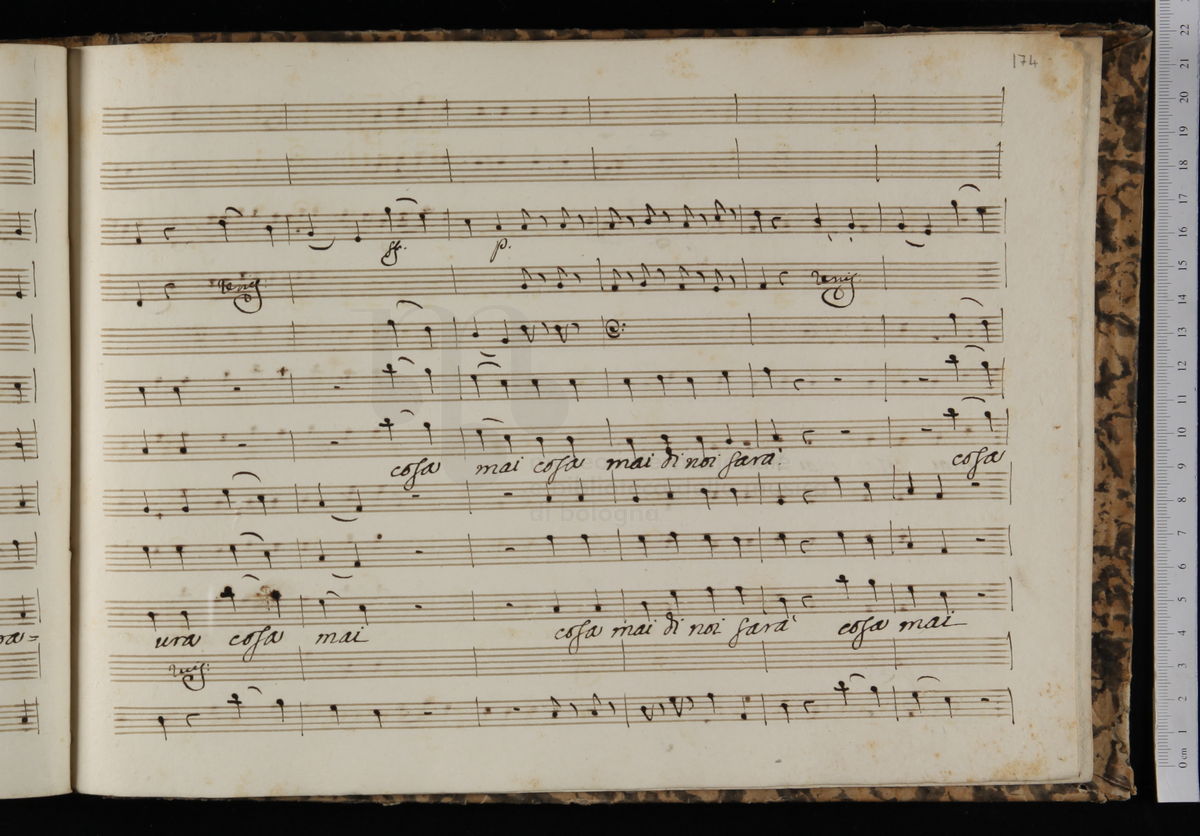 174
ff. p.
unis: unis:
cosa mai cosa mai di noi sarà. cosa
ura cosa mai cosa mai di noi sarà cosa mai
unis:
di bologna
0 cm 1 2 3 4 5 6 7 8 9 10 11 12 13 14 15 16 17 18 19 20 21 22